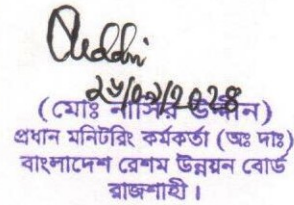 (মোঃ নাসির উদ্দীন)
প্রধান মনিটরিং কর্মকর্তা (অঃ দাঃ)
বাংলাদেশ রেশম উন্নয়ন বোর্ড
রাজশাহী।